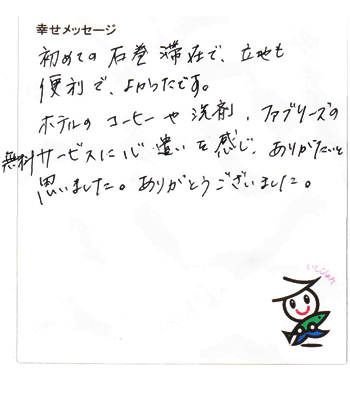 幸せメッセージ
初めての石巻滞在で、立地も
便利で、よかったです。
ホテルのコーヒーや洗剤、ファブリーズの
無料サービスに心遣いを感じ、ありがたいと
思いました。ありがとうございました。